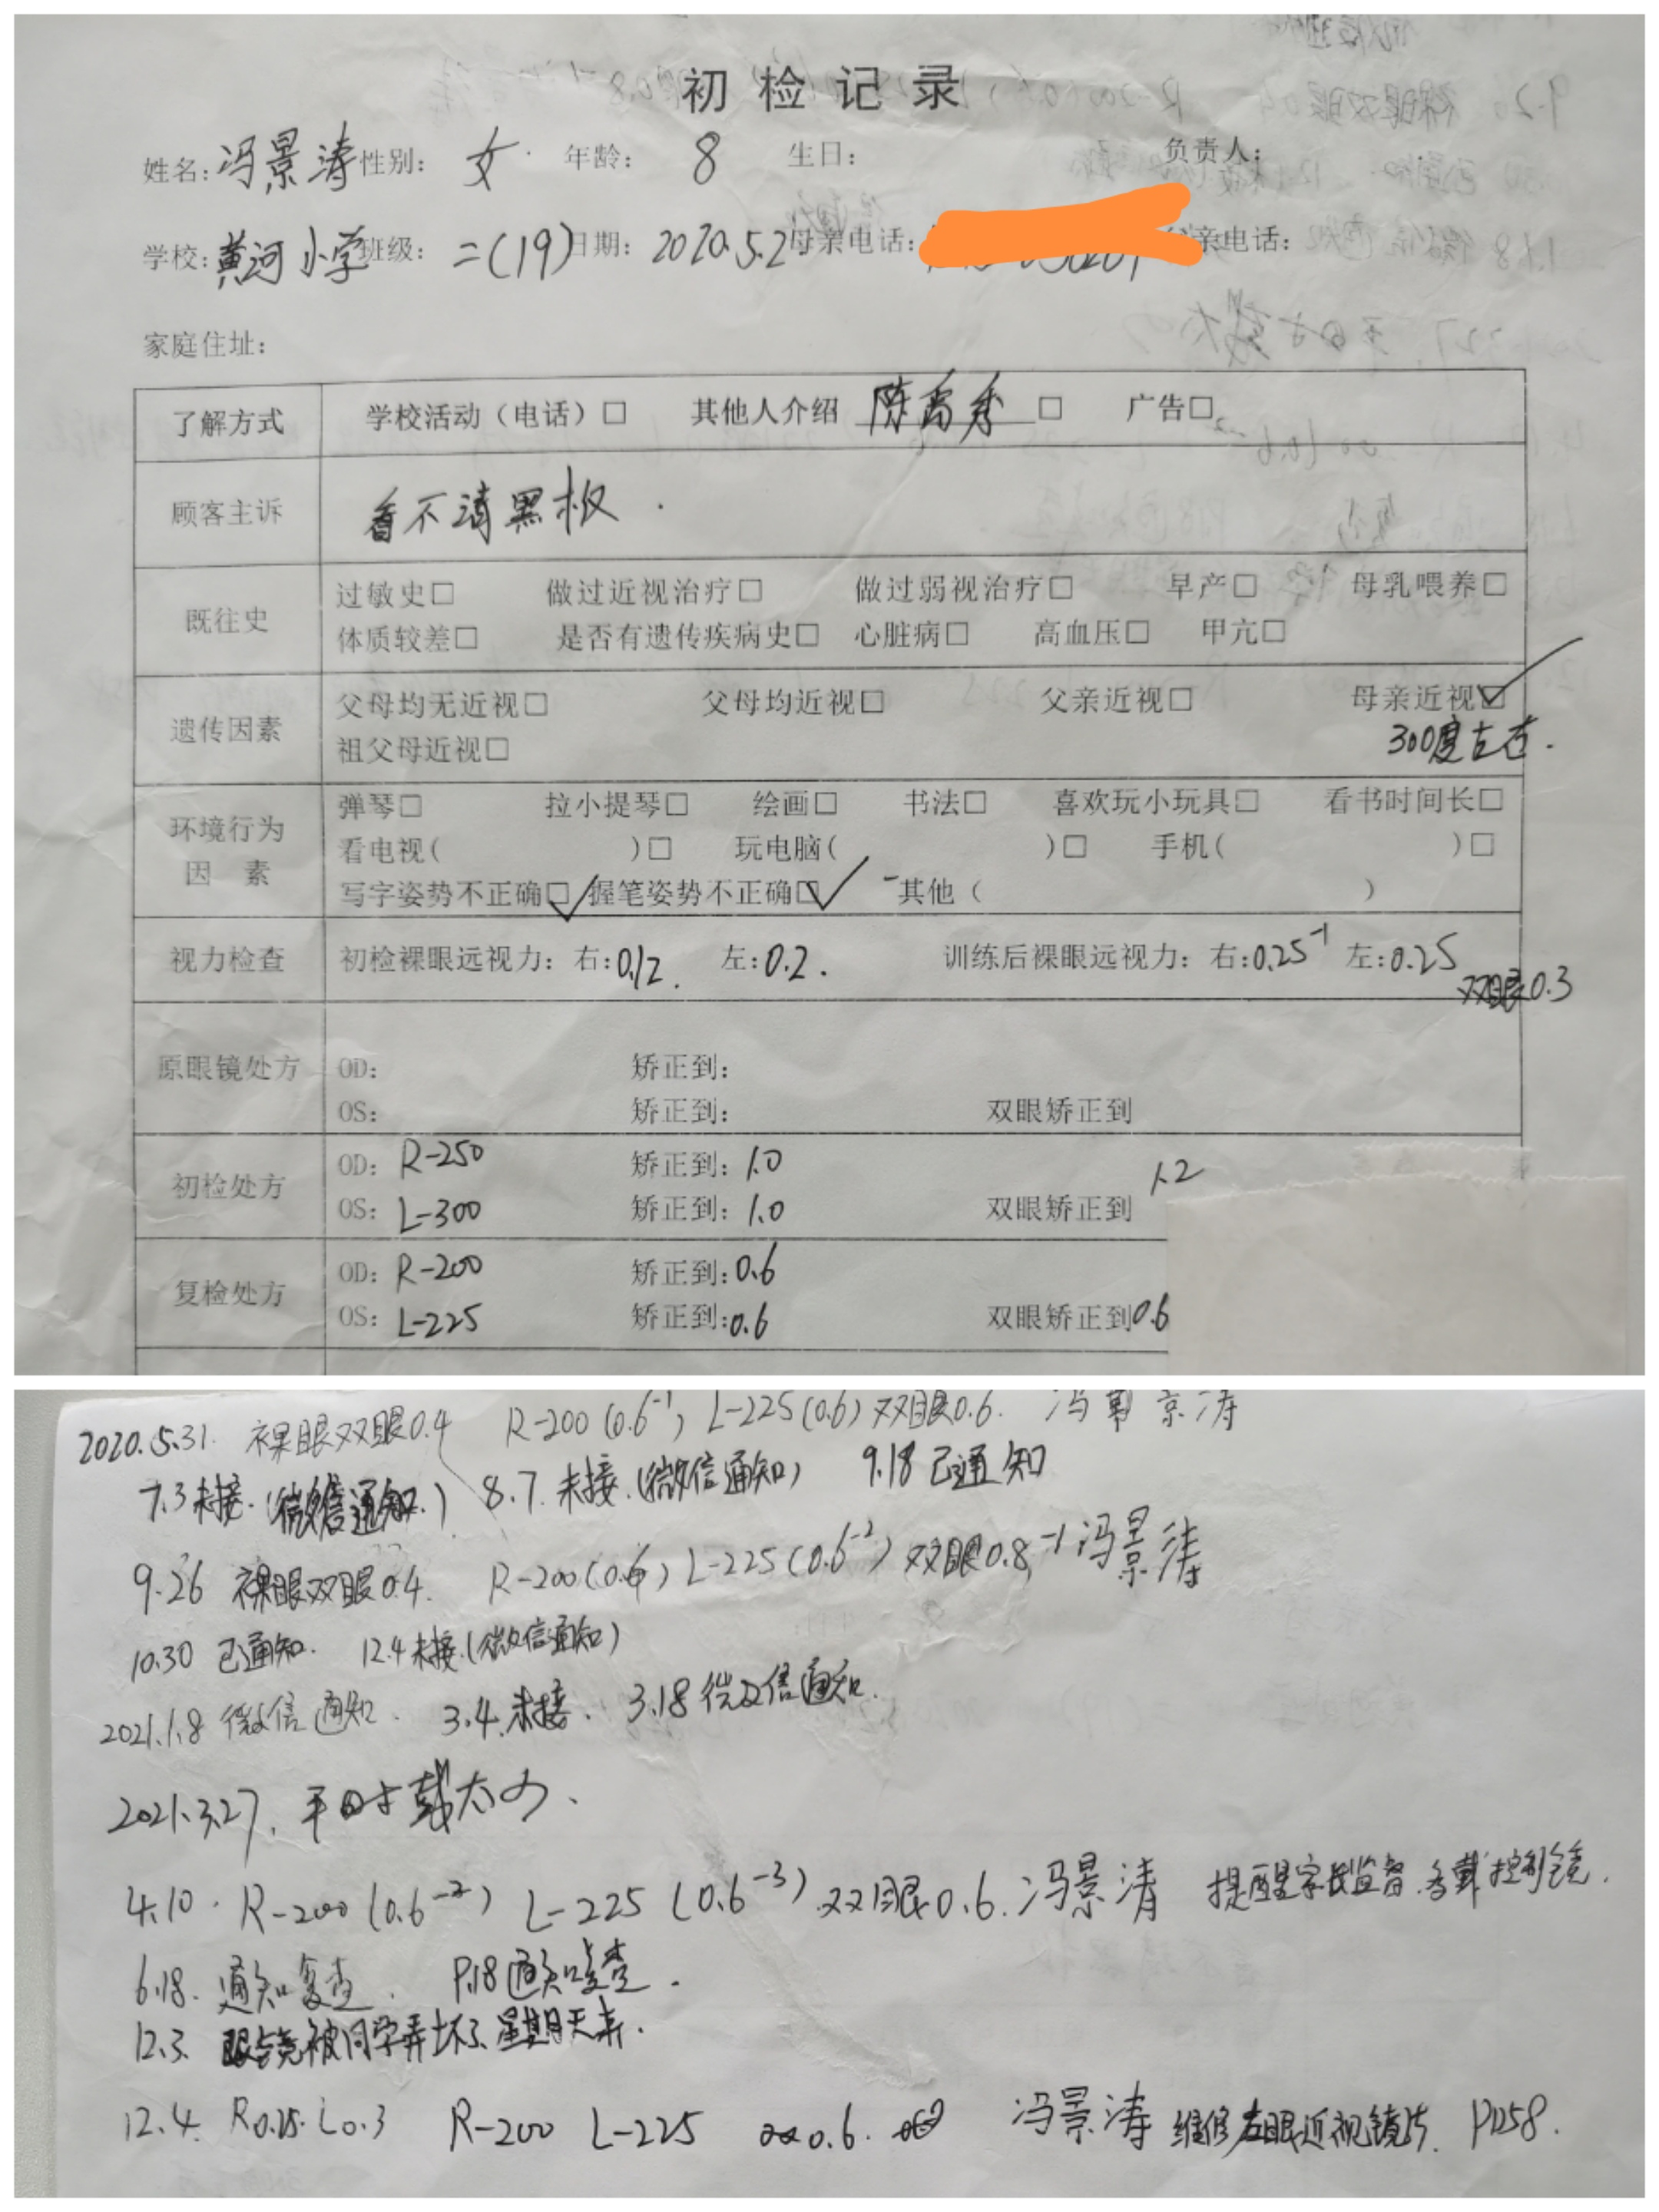 初检记录
姓名：冯景涛 性别：女 年龄：8 生日： 负责人：
学校：黄河小学 班级：二(19) 日期：2020.5.2 母亲电话： 父亲电话：
家庭住址：
了解方式 学校活动（电话）□ 其他人介绍 □ 广告□
顾客主诉 看不清黑板.
既往史 过敏史□ 做过近视治疗□ 做过弱视治疗□ 早产□ 母乳喂养□
体质较差□ 是否有遗传疾病史□ 心脏病□ 高血压□ 甲亢□
遗传因素 父母均无近视□ 父母均近视□ 父亲近视□ 母亲近视☑
祖父母近视□ 300度左右.
环境行为因素 弹琴□ 拉小提琴□ 绘画□ 书法□ 喜欢玩小玩具□ 看书时间长□
看电视（ ）□ 玩电脑（ ）□ 手机（ ）□
写字姿势不正确☑ 握笔姿势不正确☑ 其他（ ）
视力检查 初检裸眼远视力：右：0.12. 左：0.2. 训练后裸眼远视力：右：0.25⁻¹ 左：0.25
双眼0.3
原眼镜处方 OD： 矫正到：
OS： 矫正到： 双眼矫正到
初检处方 OD：R-250 矫正到：1.0
OS：L-300 矫正到：1.0 双眼矫正到 1.2
复检处方 OD：R-200 矫正到：0.6
OS：L-225 矫正到：0.6 双眼矫正到0.6
2020.5.31. 裸眼双眼0.4 R-200(0.6⁻¹) L-225(0.6) 双眼0.6. 冯景涛
7.3未接.(微信通知.) 8.7.未接.(微信通知) 9.18已通知
9.26 裸眼双眼0.4. R-200(0.6) L-225(0.6⁻²) 双眼0.8⁻¹ 冯景涛
10.30 已通知. 12.4未接.(微信通知)
2021.1.8 微信通知. 3.4.未接. 3.18微信通知.
2021.3.27. 平时戴太少.
4.10. R-200(0.6⁻²) L-225(0.6⁻³) 双眼0.6. 冯景清 提醒家长监督.多戴控制镜.
6.18. 通知复查. 9.18通知复查.
12.3. 眼镜被同学弄坏了,星期天来.
12.4. R0.25. L0.3 R-200 L-225 0.6. 冯景涛 维修左眼近视镜片. PD58.